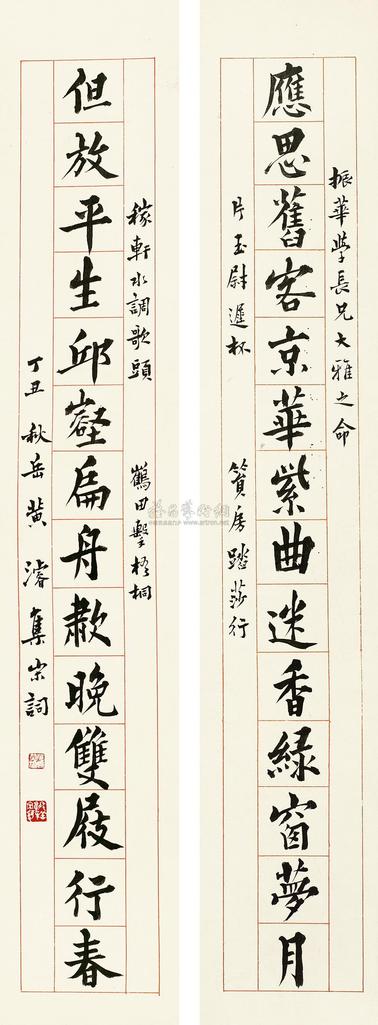 振華學長兄大雅之命
應思舊客京華紫曲迷香綠窗夢月
片玉尉遲杯
篔房踏莎行
稼軒水調歌頭
鶴田擊梧桐
但放平生邱壑扁舟欹晚雙屐行春
丁丑秋岳黄濬集宋詞